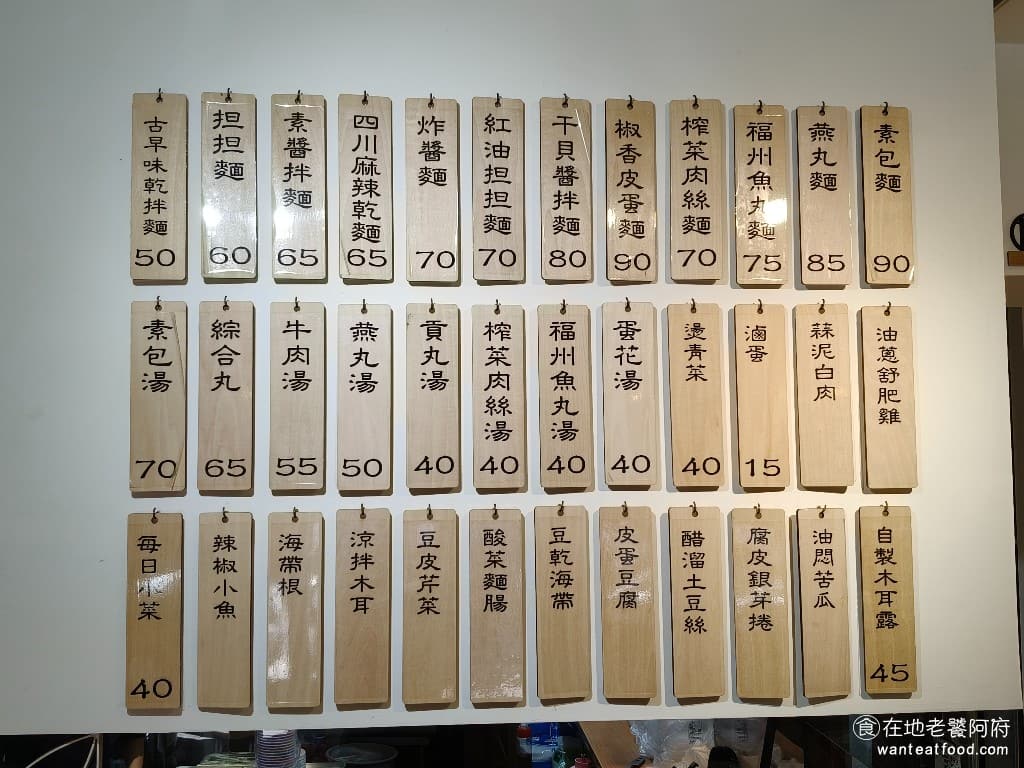 古早味乾拌麵 50
担担麵 60
素醬拌麵 65
四川麻辣乾麵 65
炸醬麵 70
紅油担担麵 70
干貝醬拌麵 80
椒香皮蛋麵 90
榨菜肉絲麵 70
福州魚丸麵 75
燕丸麵 85
素包麵 90
素包湯 70
綜合丸 65
牛肉湯 55
燕丸湯 50
貢丸湯 40
榨菜肉絲湯 40
福州魚丸湯 40
蛋花湯 40
燙青菜 40
滷蛋 15
蒜泥白肉
油蔥舒肥雞
每日小菜 40
辣椒小魚
海帶根
涼拌木耳
豆皮芹菜
酸菜麵腸
豆乾海帶
皮蛋豆腐
醋溜土豆絲
腐皮銀芽捲
油悶苦瓜
自製木耳露 45
食在地老饕阿府
wanteatfood.com